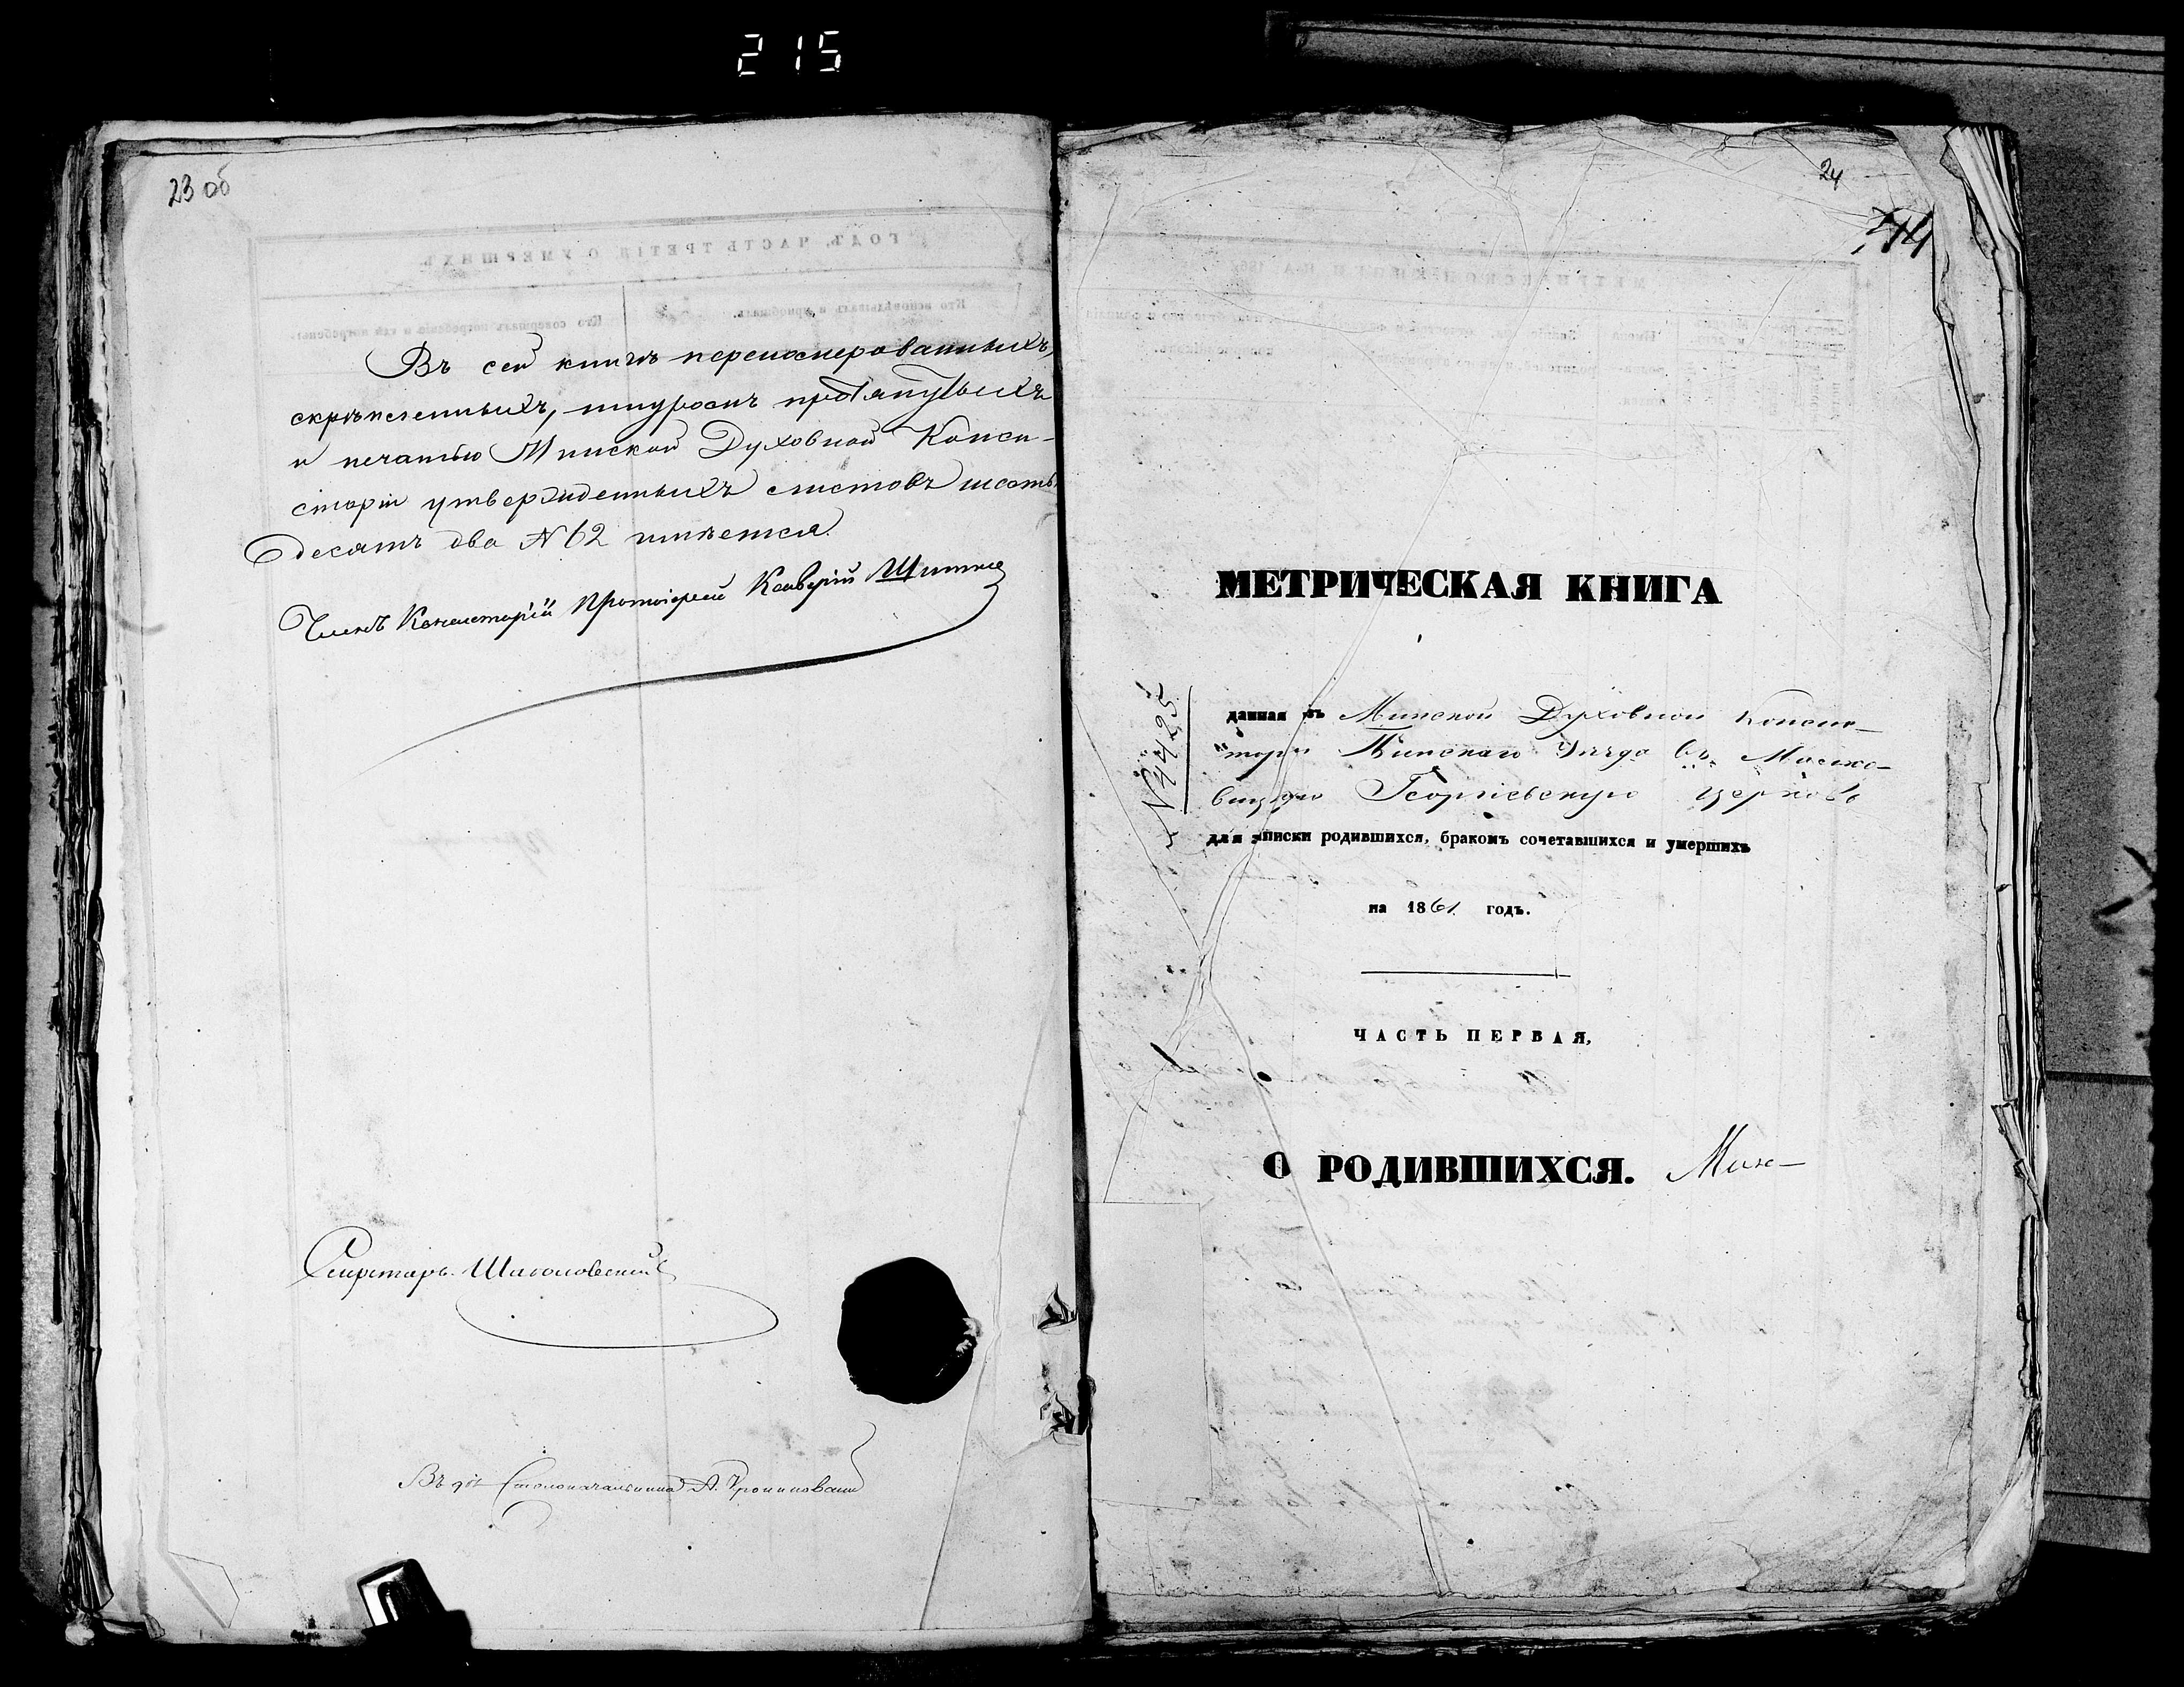 215
23 об
Въ сей книгѣ перенумерованныхъ,
скрѣпленныхъ, шнуромъ протянутыхъ
и печатью Минской Духовной Конси-
сторіи утвержденныхъ листовъ шесть
десятъ два № 62 имѣется.
Членъ Консисторіи Протоіерей
Секретарь
Въ д. Столоначальника А.
24
МЕТРИЧЕСКАЯ КНИГА
№ 4425
данная въ Минской Духовной Консис-
торіи Уѣзда въ
Георгіевскую церковь
для записки родившихся, бракомъ сочетавшихся и умершихъ
на 1861 годъ.
ЧАСТЬ ПЕРВАЯ,
О РОДИВШИХСЯ.